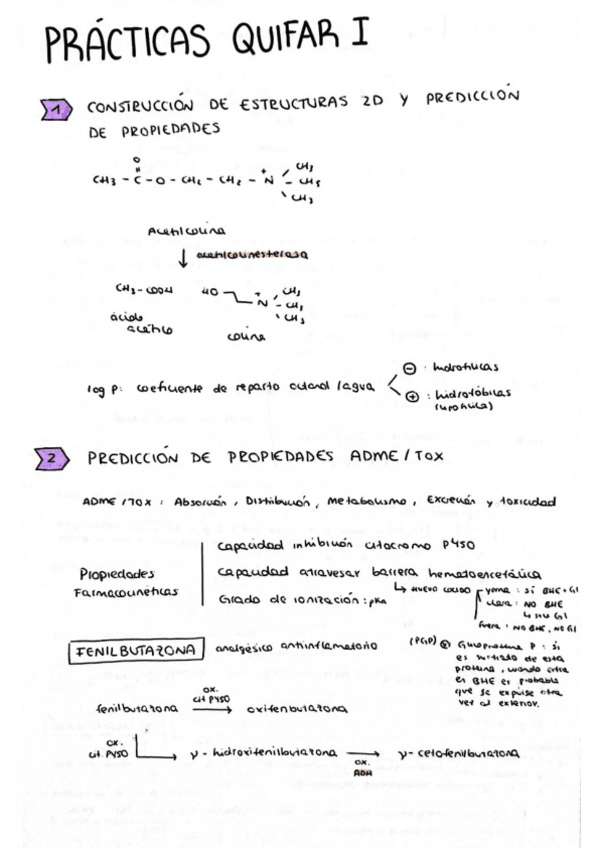 PRÁCTICAS QUIFAR I
1 CONSTRUCCIÓN DE ESTRUCTURAS 2D Y PREDICCIÓN
DE PROPIEDADES
O
CH3 - C - O - CH2 - CH2 - N+ - CH3
CH3
CH3
Acetilcolina
↓ acetilcolinesterasa
CH3 - COOH HO N+ - CH3
CH3
CH3
ácido
acético
colina
log P: coeficiente de reparto octanol / agua
⊖ : hidrofílicas
⊕ : hidrofóbicas
(lipofílica)
2 PREDICCIÓN DE PROPIEDADES ADME / TOX
ADME / TOX : Absorción, Distribución, Metabolismo, Excreción y toxicidad
Propiedades
Farmacocinéticas
capacidad inhibición citocromo P450
capacidad atravesar barrera hematoencefálica
↳ HUEVO COCIDO
yema : sí BHE + GI
clara : NO BHE
↳ sólo GI
fuera : NO BHE, NO GI
Grado de ionización : pKa
FENILBUTAZONA analgésico antiinflamatorio
(PGP) Glucoproteína P : si
es sustrato de esta
proteína, cuando entra
en BHE es probable
que se expulse otra
vez al exterior.
fenilbutazona → oxifenbutazona
ox.
cit P450
ox.
cit P450
γ - hidroxifenilbutazona → γ - cetofenilbutazona
ox.
ADH